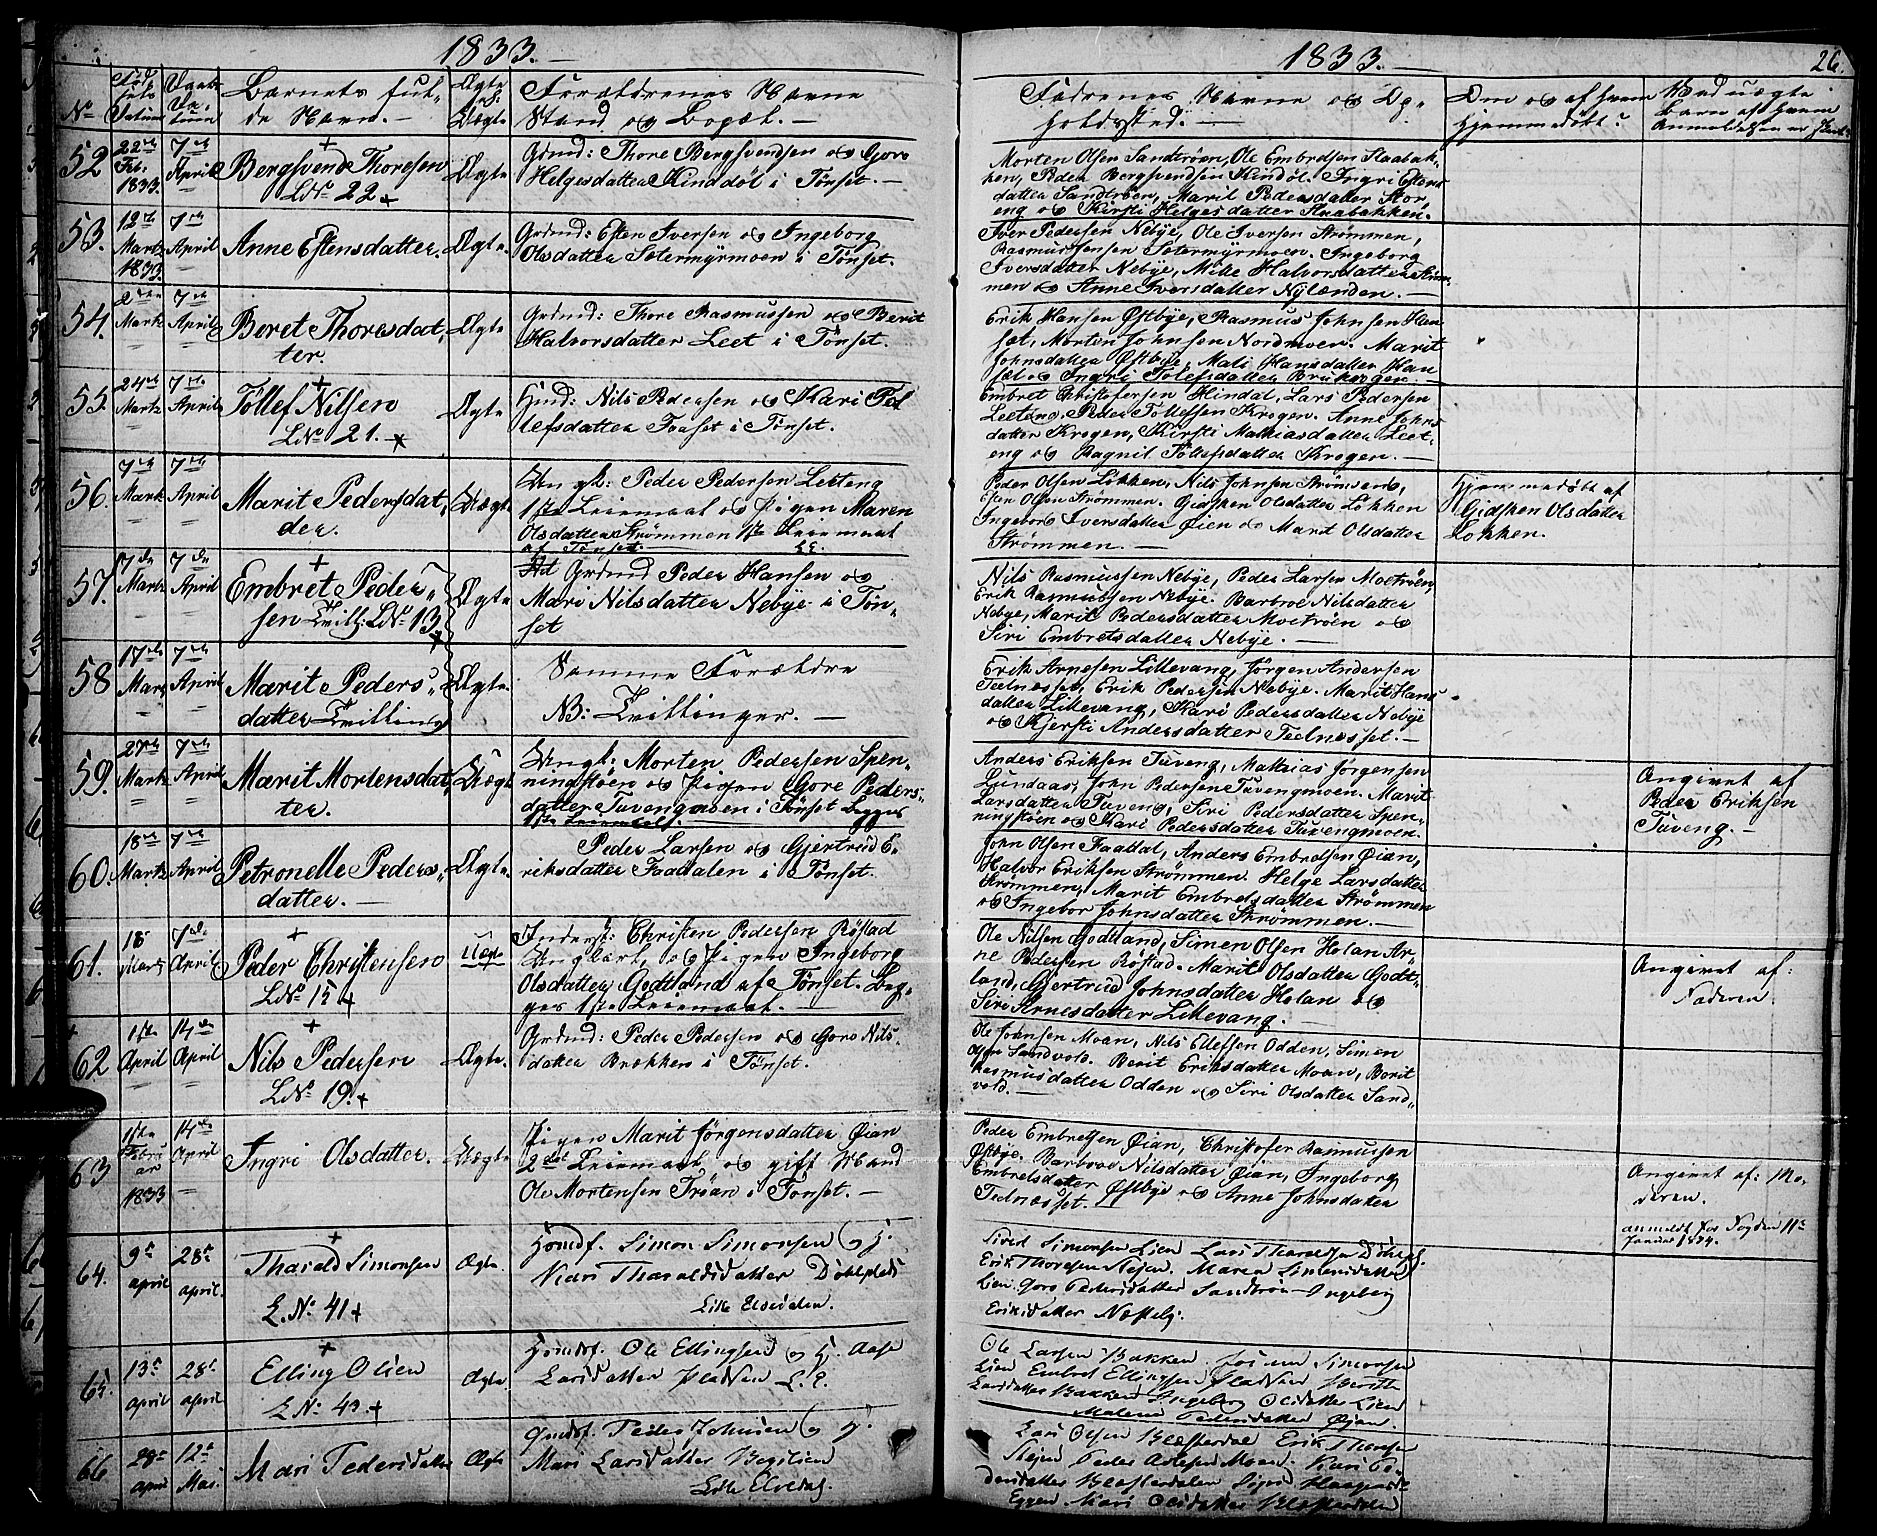 1833.
No
Fødsels Datum
Daabs Datum
Barnets ful-
de Navn.
Ægte ell: Uægte
Forældrenes Navne
Stand og Bopæl.
52
22de Feb. 1833.
7de April
Bergsvend Thoresen
LNo 22
Ægte
Grdmd: Thore Bergsvendsen og Goro
Helgesdatter Kinddøl i Tønset.
53.
12te Martz 1833.
7de April
Anne Estensdatter.
Ægte.
Grdmd: Esten Iversen og Ingeborg
Olsdatter Sætermyrmoen i Tønset.
54.
2den Martz
7de April
Beret Thoresdat-
ter.
Ægte
Grdmd: Thore Rasmussen og Berit
Halvorsdatter Leet i Tønset.
55.
24de Martz
7de April
Tollef Nilsen
LNo 21.
Ægte
Hmd: Nils Pedersen og Kari Tol
lefsdatter Fonset i Tønset.
56.
7de Martz
7de April
Marit Pedersdat-
der.
Uægte
Ungk: Peder Pedersen Leeteng
1ste Leiermaal og Pigen Maren
Olsdatter Strømmen 1ste Leiermaal
af Tønset.
57.
7de Martz
7de April
Embret Peder-
sen Tvill: LNo 13
Ægte
Grdmd Peder Hansen og
Mari Nilsdatter Nebye i Tøn-
set
58
17de Marz
7de April
Marit Peders-
datter Tvilling
Ægte.
Samme Forældre
NB: Tvillinger.
59.
27de Martz
7de April
Marit Mortensdat-
ter.
Uægte
Ungk: Morten Pedersen Spen-
ningstøen og Pigen Gore Peders-
datter Tuvengmoen i Tønset Begges
1ste Leiermaal.
60.
18de Martz
7de April
Petronelle Peders-
datter.
Ægte.
Peder Larsen og Gjertrud E-
riksdatter Faadalen i Tønset.
61.
18 Marts
7de April
Peder Christensen
LNo 15
Uægte
Christen Pedersen Røstad
Ungkarl, og Pigen Ingeborg
Olsdatter Godtland af Tønset. Beg-
ges 1ste Leiermaal.
62
1ste April
14de April
Nils Pedersen
LNo 19.
Ægte.
Grdmd: Peder Pedersen og Goro Nils-
datter Brækken i Tønset.
63
1ste Februar 1833
14de April
Ingri Olsdatter.
Uægte
Pigen Marit Jørgensdatter Øian
2det Leiermaal og gift Mand
Ole Mortensen Trøan i Tønset.
64.
9de april
28de april.
Tharald Simonsen
L.No 41
Ægte.
Simon Simonsen og H.
Mari Tharaldsdatter Døhlplads
Lille Elvedalen.
65.
13de april
28de april
Elling Olsen
L No 43
Ægte.
Ole Ellingsen og H. Aase
Larsdatter Pladsen L.E.
66
28de april
12te Mai.
Mari Pedersdatter
Ægte
Peder Johnsen og H.
Mari Larsdatter Bergslien
Lille Elvedal.
1833.
26.
Fadrenes Navne og Op-
holdssted.
Om og af hvem
hjemmedøbt?
Ved uægte
Børn af hvem
Anmeldelsen er skeet
Morten Olsen Sandtrøen, Ole Embretsen Skabak-
ken, Peder Bergsvendsen Kindøl. Ingri Estens
datter Sandtrøen, Marit Pedersdatter Stor-
eng og Kirsti Helgesdatter Skrabakken.
Iver Pedersen Nebye, Ole Iversen Strømmen,
Rasmus Jensen Sætermyrmoen. Ingeborg
Iversdatter Nebye, Mille Halvorsdatter Strøm-
men og Anne Iversdatter Nylænden.
Erik Hansen Østbye, Rasmus Johnsen Han-
sæt, Morten Johnsen Nordmoen. Marit
Johnsdatter Østbye, Mali Hansdatter Han
sæt og Ingri Tolefsdatter Brukrogen.
Embret Christofersen Hindal, Lars Pedersen
Leeteng. Peder Tollefsen Krogen. Anne Johns
datter Krogen, Kirsti Mathiasdatter Leet-
eng og Ragnil Tollefsdatter Krogen.
Peder Olsen Løkken, Nils Johnsen Strømmen,
Esten Olsen Strømmen. Gidsken Olsdatter Løkken
Ingebor Iversdatter Øien og Marit Olsdatter
Strømmen.
Hjemmedøbt af
Gidsken Olsdatter
Løkken.
Nils Rasmussen Nebye, Peder Larsen Moetrøen,
Erik Rasmussen Nebye. Barbroe Nilsdatter
Nebye, Marit Pedersdatter Moetrøen og
Siri Embretsdatter Nebye.
Erik Arnesen Lillevang, Jørgen Andersen
Telnesset, Erik Pedersen Nebye. Marit Hans
datter Lillevang, Kari Pedersdatter Nebye
og Kjersti Andersdatter Telnesset.
Anders Eriksen Tuveng, Mathias Jørgensen
Lundaas, John Pedersen Tuvengmoen. Marit
Larsdatter Tuveng, Siri Pedersdatter Spen-
ningstøen og Kari Pedersdatter Tuvengmoen.
Angivet af
Peder Eriksen
Tuveng.
John Olsen Faadal, Anders Embretsen Øian,
Halvor Eriksen Strømmen. Helge Larsdatter
Strømmen, Marit Embretsdatter Strømmen
og Ingebor Johnsdatter Strømmen.
Ole Nilsen Godtland, Simen Olsen Holan Ar-
ne Pedersen Røstad. Marit Olsdatter Godt-
land, Gjertrud Johnsdatter Holan og
Siri Arnesdatter Lillevang.
Angivet af:
Faderen.
Ole Johnsen Moan, Nils Ellefsen Odden, Simen
Olsen Sandvold. Berit Eriksdatter Moan, Berit
Rasmusdatter Odden og Siri Olsdatter Sand-
vold.
Peder Embretsen Øian, Christofer Rasmussen
Østbye. Barbroe Nilsdatter Øian, Ingeborg
Embretsdatter Østbye og Anne Johnsdatter
Telnesset.
Angivet af: Mo-
deren.
anmeldt for Fogden 11te
Januar 1834.
Sivert Simonsen Lien Lars Tharaldsen Døhlpl.
Erik Thoresen Stejen. Maren Simensdatter
Lien. Goro Pedersdatter Sandtrøen Ingeborg
Eriksdatter Næsselg.
Ole Larsen Bakken. Simonsen
Lien Embret Ellingsen Pladsen Berith
Larsdatter Bakken Ingeborg Olsdatter Lien
Malene Pedersdatter Øian.
Lars Olsen Bleskerdal Erik Thoresen
Stejen Peder Moen. Kari Pe-
dersdatter Bleskerdalen Sigrid
Eggen. Mari Olsdatter Bleskerdalen